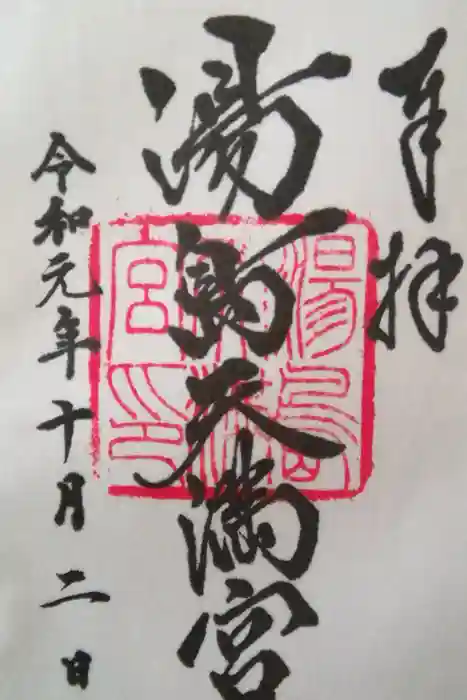 奉拝
湯島天満宮
令和元年十月二日
湯島天満宮印